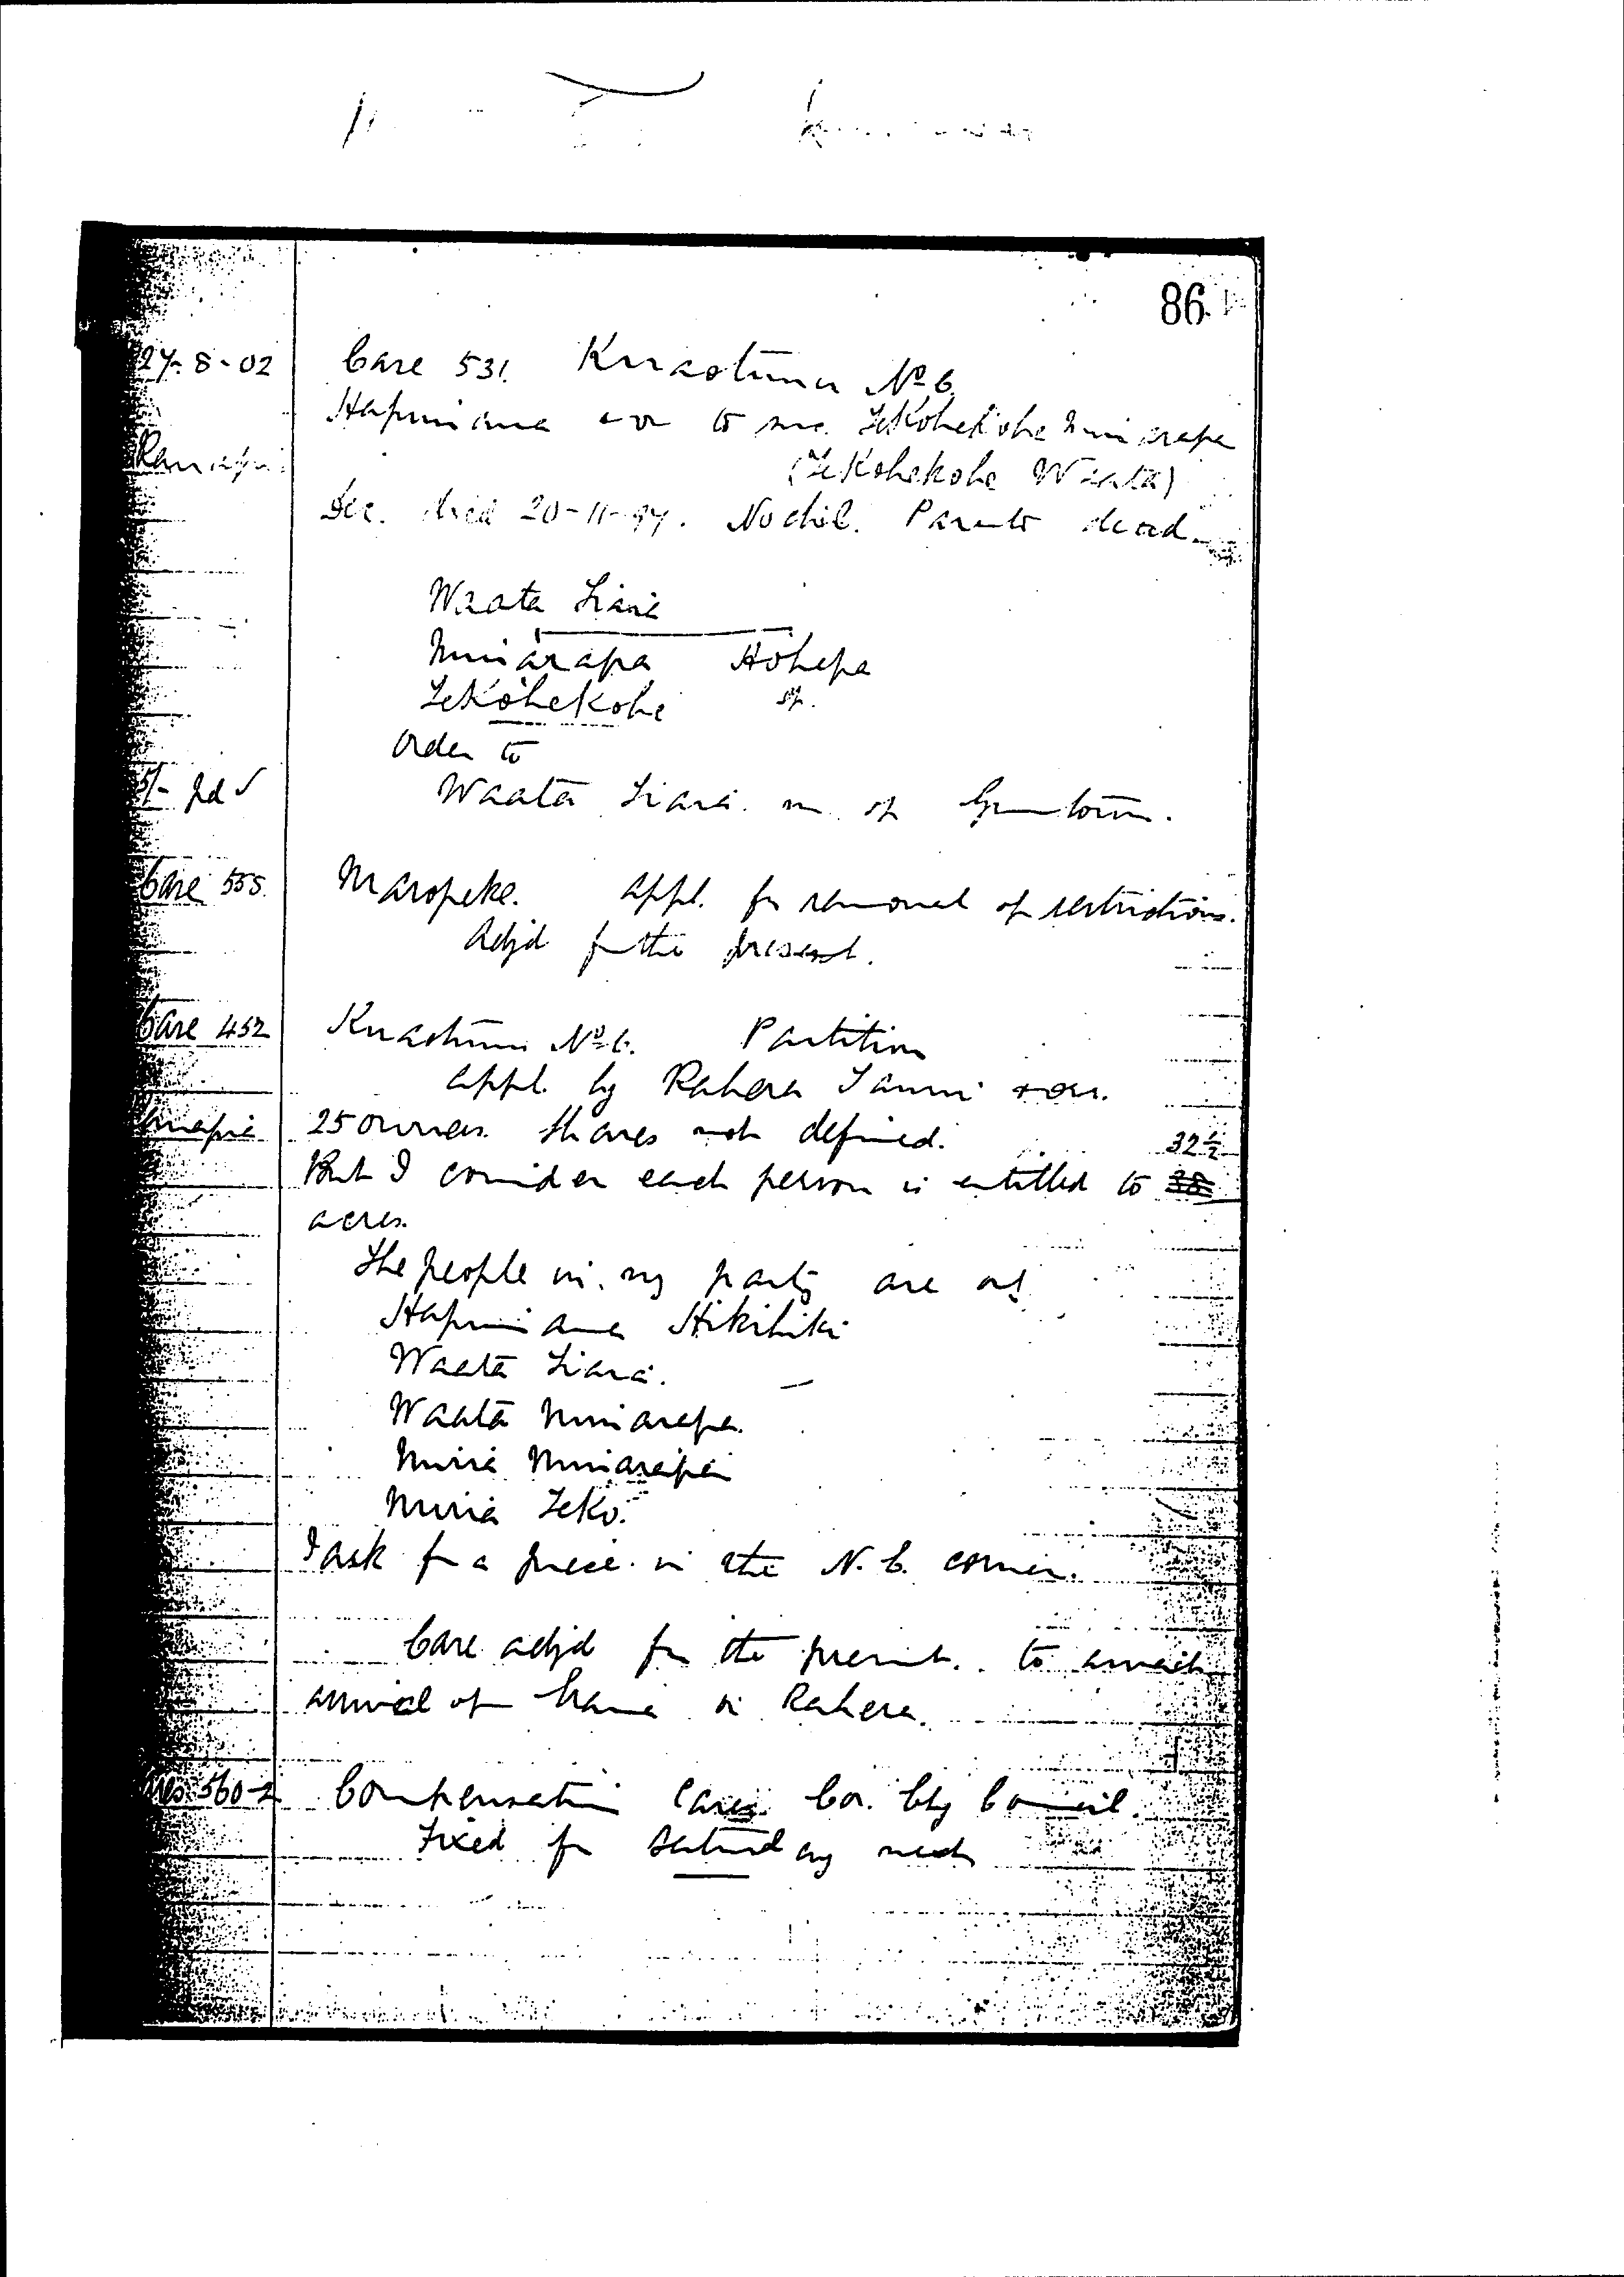 86
27-8-02 Case 531. Kuaotunu No 6.
Hapimana + or to suc. TeKohekohe Miriarapa
(TeKohekohe Waata)
Dec. died 20-11-97. No chil. Parents dead.
Waata Tiari
Miriarapa Hohepa
TeKohekohe sp.
Order to
5/- pd ✓ Waata Tiari m of
Case 555. Maropeke. Appl. for removal of restrictions.
Adjd for the present.
Case 452 Kuaotunu No 6. Partition
Appl. by Rahera Tanui + ors.
25 owners. Shares not defined. 32½
But I consider each person is entitled to 38
acres.
The people in my party are
Hapimana Hikihiki
Waata Tiari.
Waata Miriarapa.
Miria Miriarapa
Miria Teko.
I ask for a piece in the N.E. corner.
Case adjd for the present. to await
arrival of Rahera.
560-2 Compensation Cases Co. Cty Council.
Fixed for Saturday next